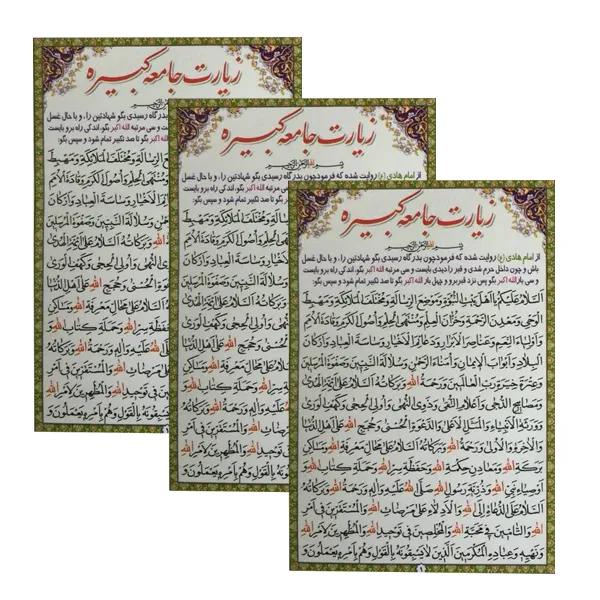 زیارت جامعه کبیره
بسم الله الرحمن الرحیم
از امام هادی (ع) روایت شده که فرمود چون بدرگاه رسیدی بگو شهادتین را، و با حال غسل
باش و چون داخل حرم شدی و قبر را دیدی بایست و سی مرتبه الله اکبر بگو، اندکی راه برو بایست
و سی بار الله اکبر بگو پس نزد قبر برو و چهل بار الله اکبر بگو تا صد تکبیر تمام شود و سپس بگو:
اَلسَّلامُ عَلَیْکُمْ یا اَهْلَ بَیْتِ النُّبُوَّةِ وَمَوْضِعَ الرِّسالَةِ وَمُخْتَلَفَ الْمَلائِکَةِ وَمَهْبِطَ
الْوَحْیِ وَمَعْدِنَ الرَّحْمَةِ وَخُزّانَ الْعِلْمِ وَمُنْتَهَی الْحِلْمِ وَاُصُولَ الْکَرَمِ وَقادَةَ الْاُمَمِ
وَاَوْلِیاءَ النِّعَمِ وَعَناصِرَ الْاَبْرارِ وَدَعائِمَ الْاَخْیارِ وَساسَةَ الْعِبادِ وَاَرْکانَ
الْبِلادِ وَاَبْوابَ الْایمانِ وَاُمَناءَ الرَّحْمنِ وَسُلالَةَ النَّبِیّینَ وَصَفْوَةَ الْمُرْسَلینَ
وَعِتْرَةَ خِیَرَةِ رَبِّ الْعالَمینَ وَرَحْمَةُ اللهِ وَبَرَکاتُهُ اَلسَّلامُ عَلی اَئِمَّةِ الْهُدی
وَمَصابیحِ الدُّجی وَاَعْلامِ التُّقی وَذَوِی النُّهی وَاُولِی الْحِجی وَکَهْفِ الْوَری
وَوَرَثَةِ الْاَنْبِیاءِ وَالْمَثَلِ الْاَعْلی وَالدَّعْوَةِ الْحُسْنی وَحُجَجِ اللهِ عَلی اَهْلِ الدُّنْیا
وَالْاخِرَةِ وَالْاُولی وَرَحْمَةُ اللهِ وَبَرَکاتُهُ اَلسَّلامُ عَلی مَحالِّ مَعْرِفَةِ اللهِ وَمَساکِنِ
بَرَکَةِ اللهِ وَمَعادِنِ حِکْمَةِ اللهِ وَحَفَظَةِ سِرِّ اللهِ وَحَمَلَةِ کِتابِ اللهِ وَ
اَوْصِیاءِ نَبِیِّ اللهِ وَذُرِّیَّةِ رَسُولِ اللهِ صَلَّی اللهُ عَلَیْهِ وَالِهِ وَرَحْمَةُ اللهِ وَبَرَکاتُهُ
اَلسَّلامُ عَلَی الدُّعاةِ اِلَی اللهِ وَالْاَدِلّاءِ عَلی مَرْضاتِ اللهِ وَالْمُسْتَقِرّینَ فی اَمْرِ
اللهِ وَالتّامّینَ فی مَحَبَّةِ اللهِ وَالْمُخْلِصینَ فی تَوْحیدِ اللهِ وَالْمُظْهِرینَ لِاَمْرِ اللهِ
وَنَهْیِهِ وَعِبادِهِ الْمُکْرَمینَ الَّذینَ لا یَسْبِقُونَهُ بِالْقَوْلِ وَهُمْ بِاَمْرِهِ یَعْمَلُونَ وَ
۱